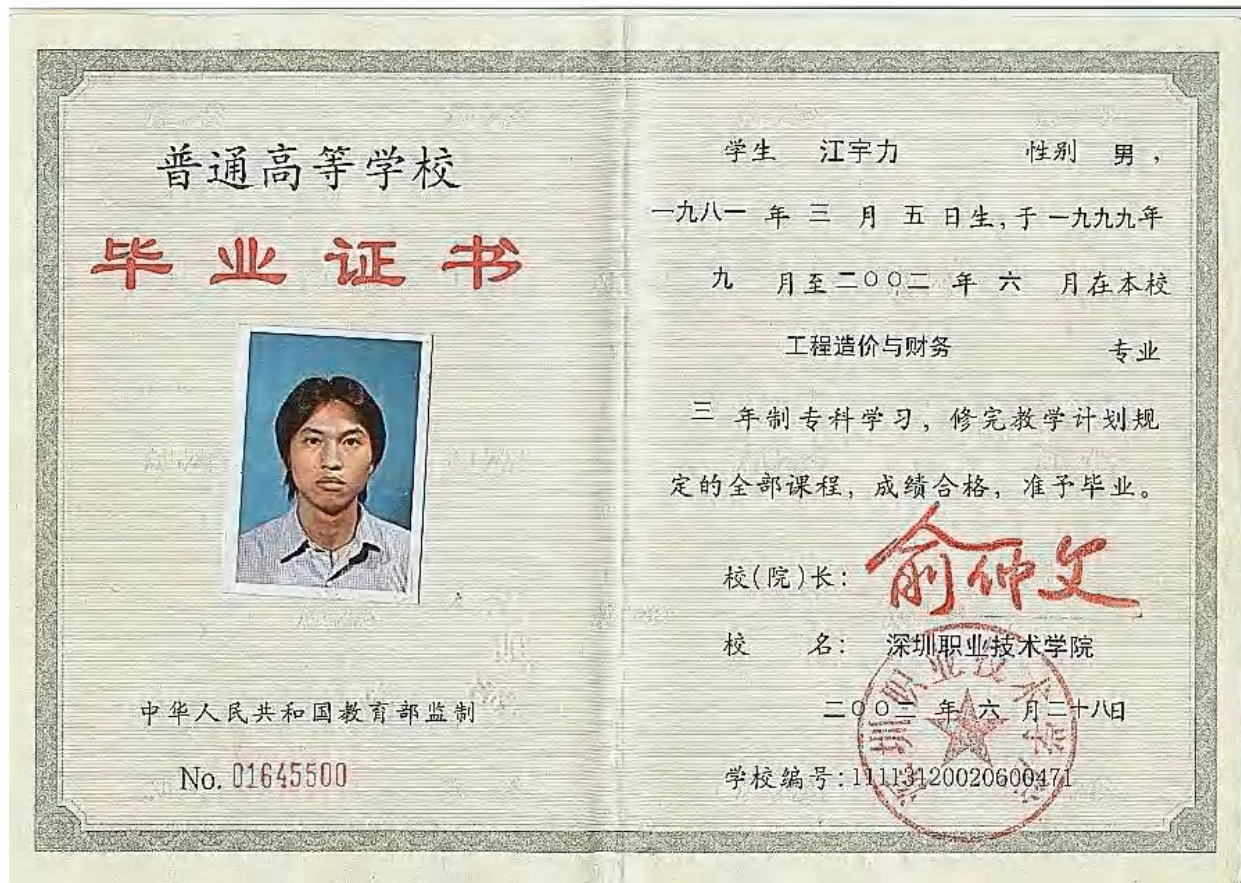 普通高等学校
毕业证书
中华人民共和国教育部监制
No. 01645500
学生 江宇力 性别 男，
一九八一 年 三 月 五 日生，于 一九九九年
九 月至二〇〇二 年 六 月在本校
工程造价与财务 专业
三 年制专科学习，修完教学计划规
定的全部课程，成绩合格，准予毕业。
校(院)长： 俞仲文
校 名： 深圳职业技术学院
二〇〇二 年 六 月二十八日
学校编号：11113120020600471